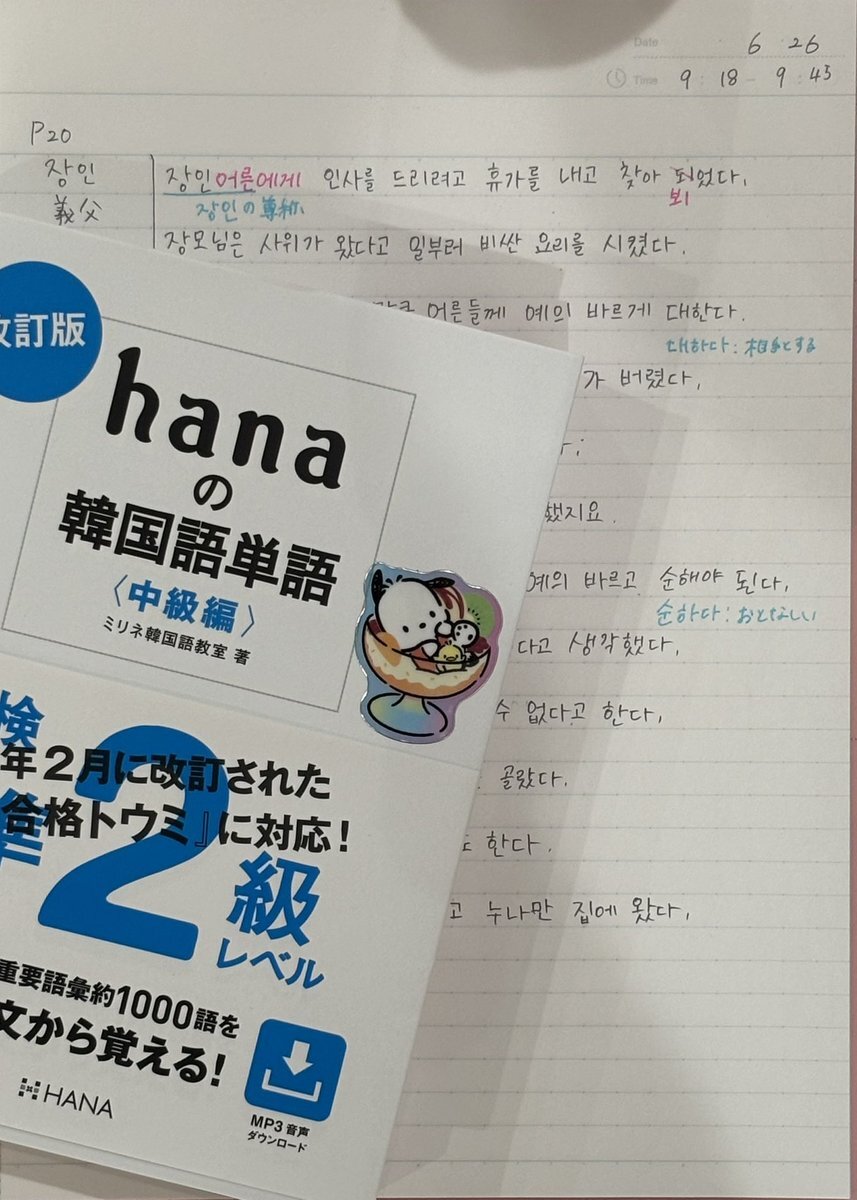 Date 6 26
Time 9:18 - 9:43
P20
장인
義父
장인어른에게 인사를 드리려고 휴가를 내고 찾아 되었다.
뵈
장인の尊称
장모님은 사위가 왔다고 일부러 비싼 요리를 시켰다.
어른들께 예의 바르게 대한다.
대하다:相手とする
가 버렸다.
했지요.
예의 바르고 순해야 된다.
순하다:おとなしい
다고 생각했다.
수 없다고 한다.
골랐다.
한다.
고 누나만 집에 왔다.
改訂版
hana
の
韓国語単語
〈中級編〉
ミリネ韓国語教室 著
検
準2級
レベル
年2月に改訂された
合格トウミ』に対応!
重要語彙約1000語を
文から覚える!
HANA
MP3音声
ダウンロード